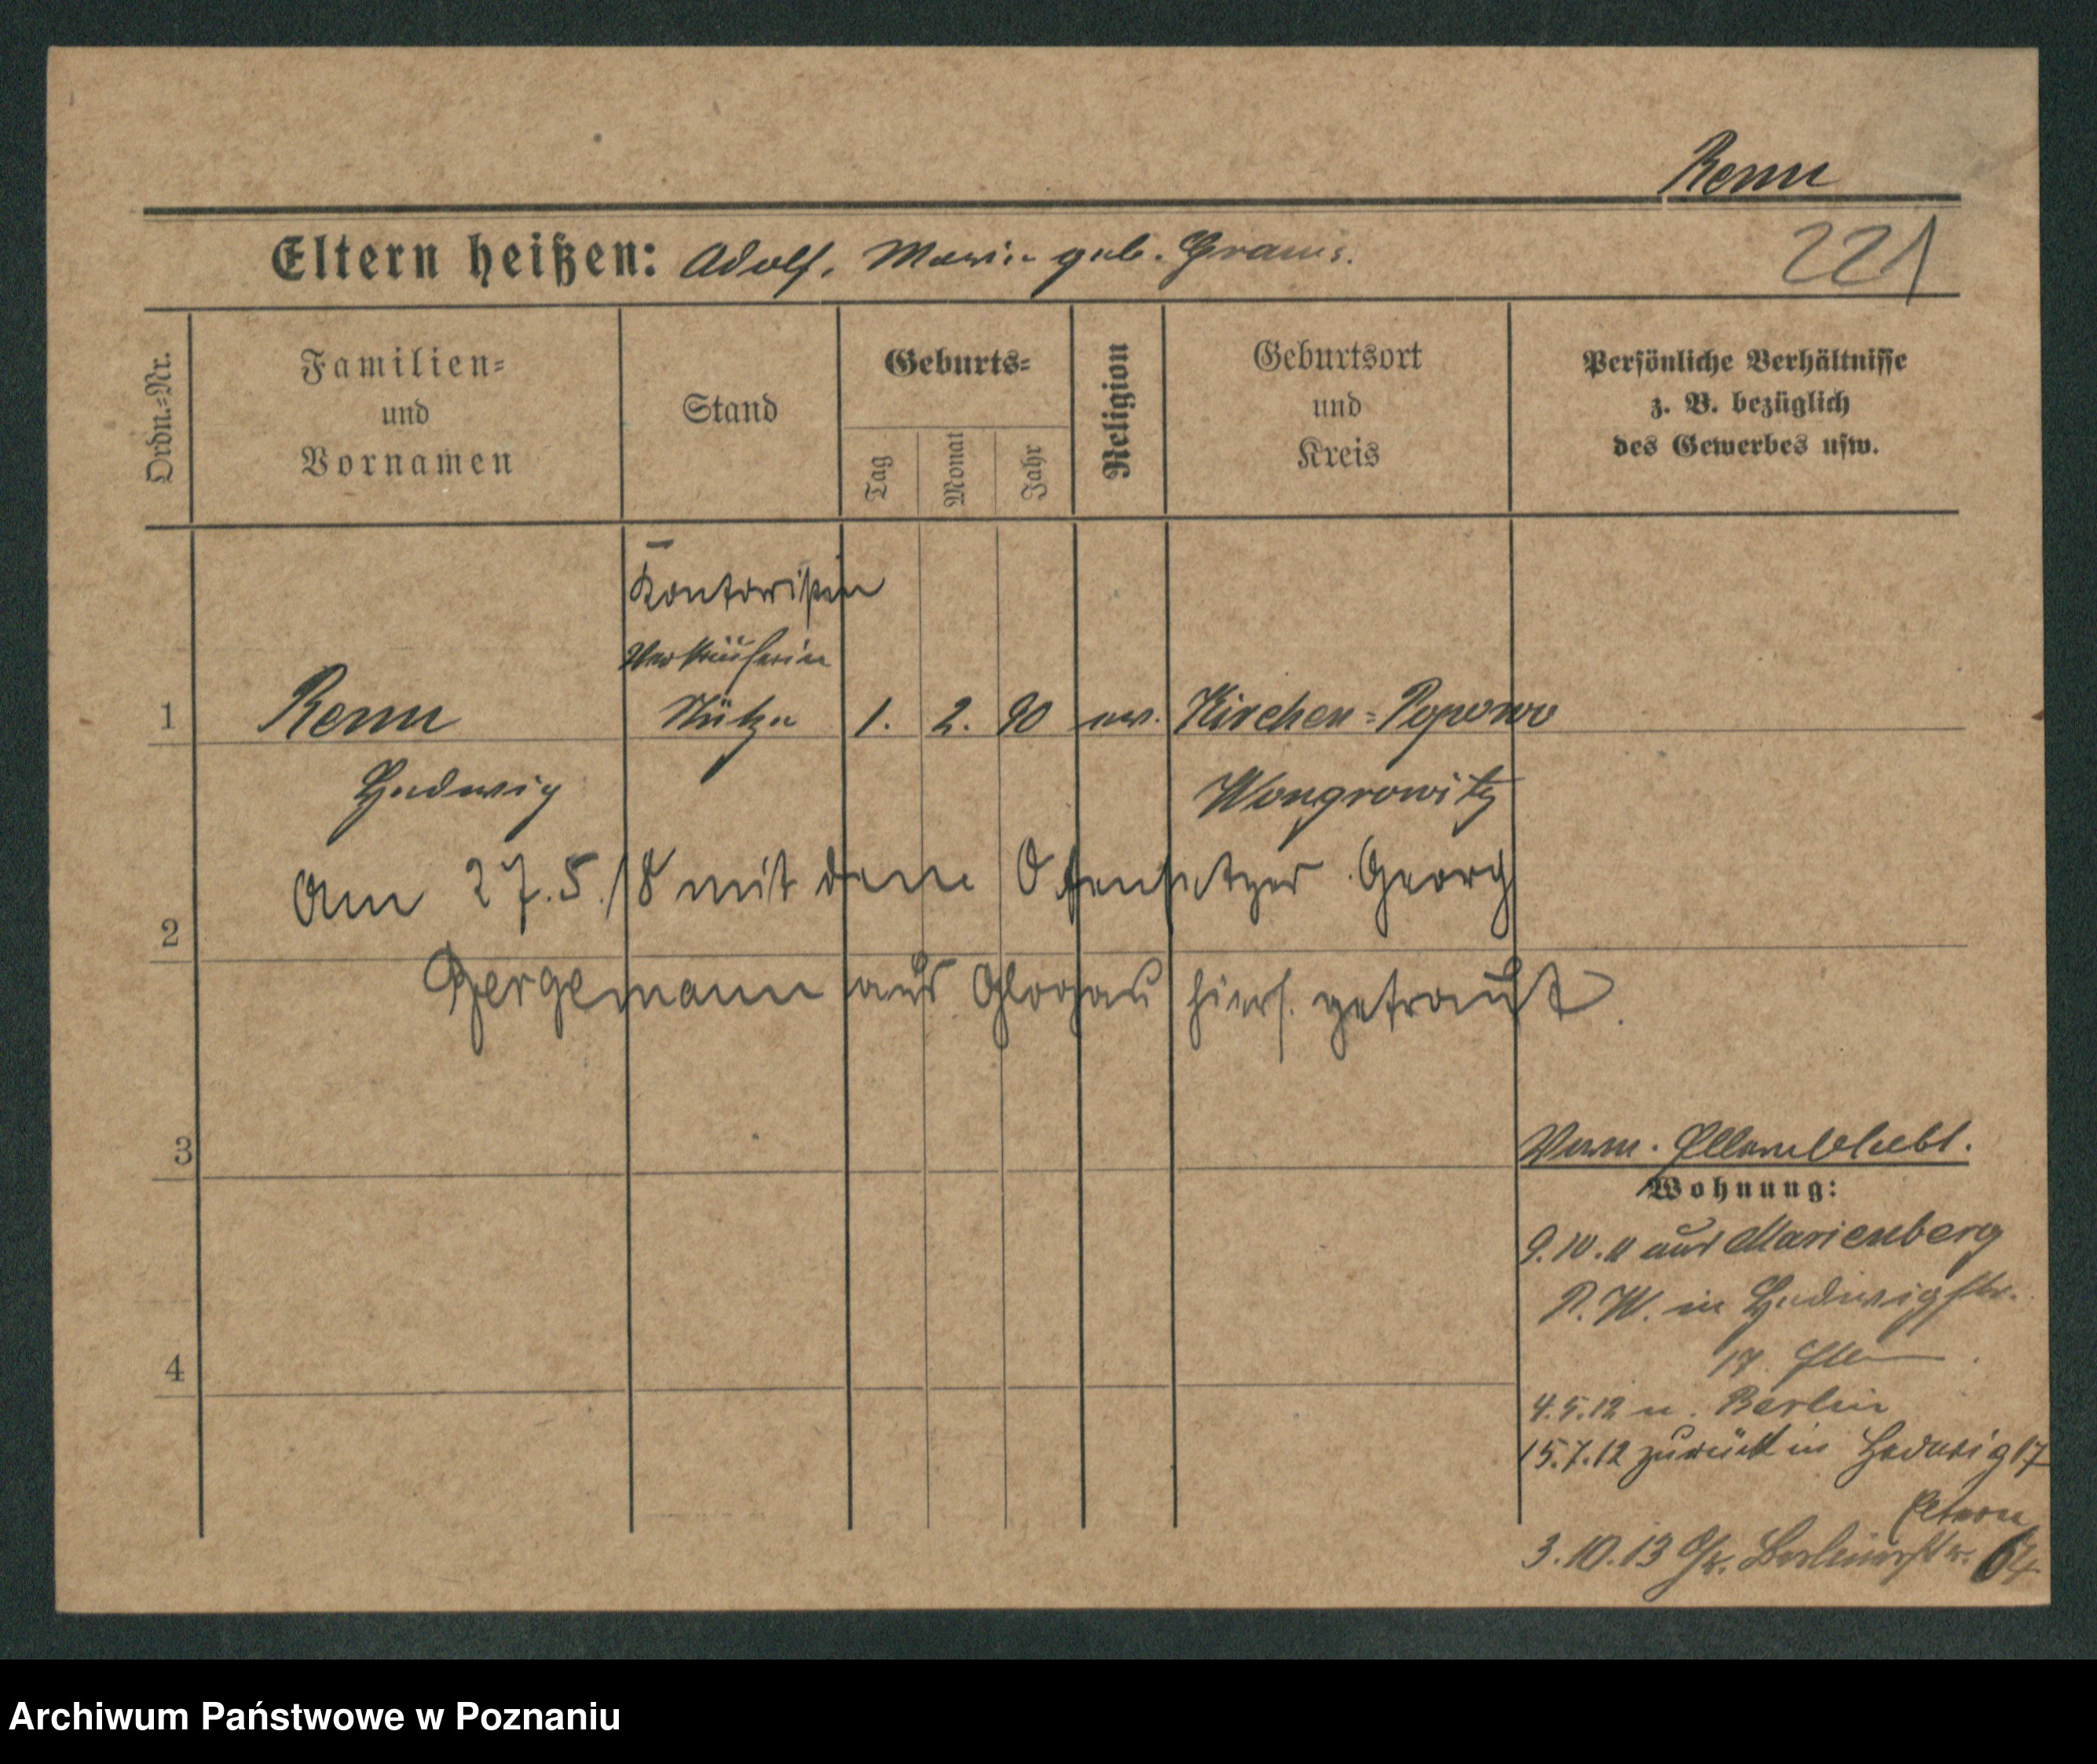 Renn
Eltern heißen: Adolf, Marie geb. Grams.
221
Ordn.=Nr.
Familien=
und
Vornamen
Stand
Geburts=
Tag
Monat
Jahr
Religion
Geburtsort
und
Kreis
Persönliche Verhältnisse
z. B. bezüglich
des Gewerbes usw.
Kontoristin
Verkäuferin
1 Renn Stütze 1. 2. 90 ev. Kirchen=Popowo
Hedwig Wongrowitz
Am 27.5.18 mit dem Ofensetzer Georg
2
Gergemann aus Glogau hiers. getraut.
3
Wohnung:
9.10.11 aus Marienberg
P. W. in Hedwigstr.
17.
4
4.5.12 n. Berlin
15.7.12 zurück in Hedwig 17
Eltern
3.10.13 Gr. Berlinerstr. 64
Archiwum Państwowe w Poznaniu